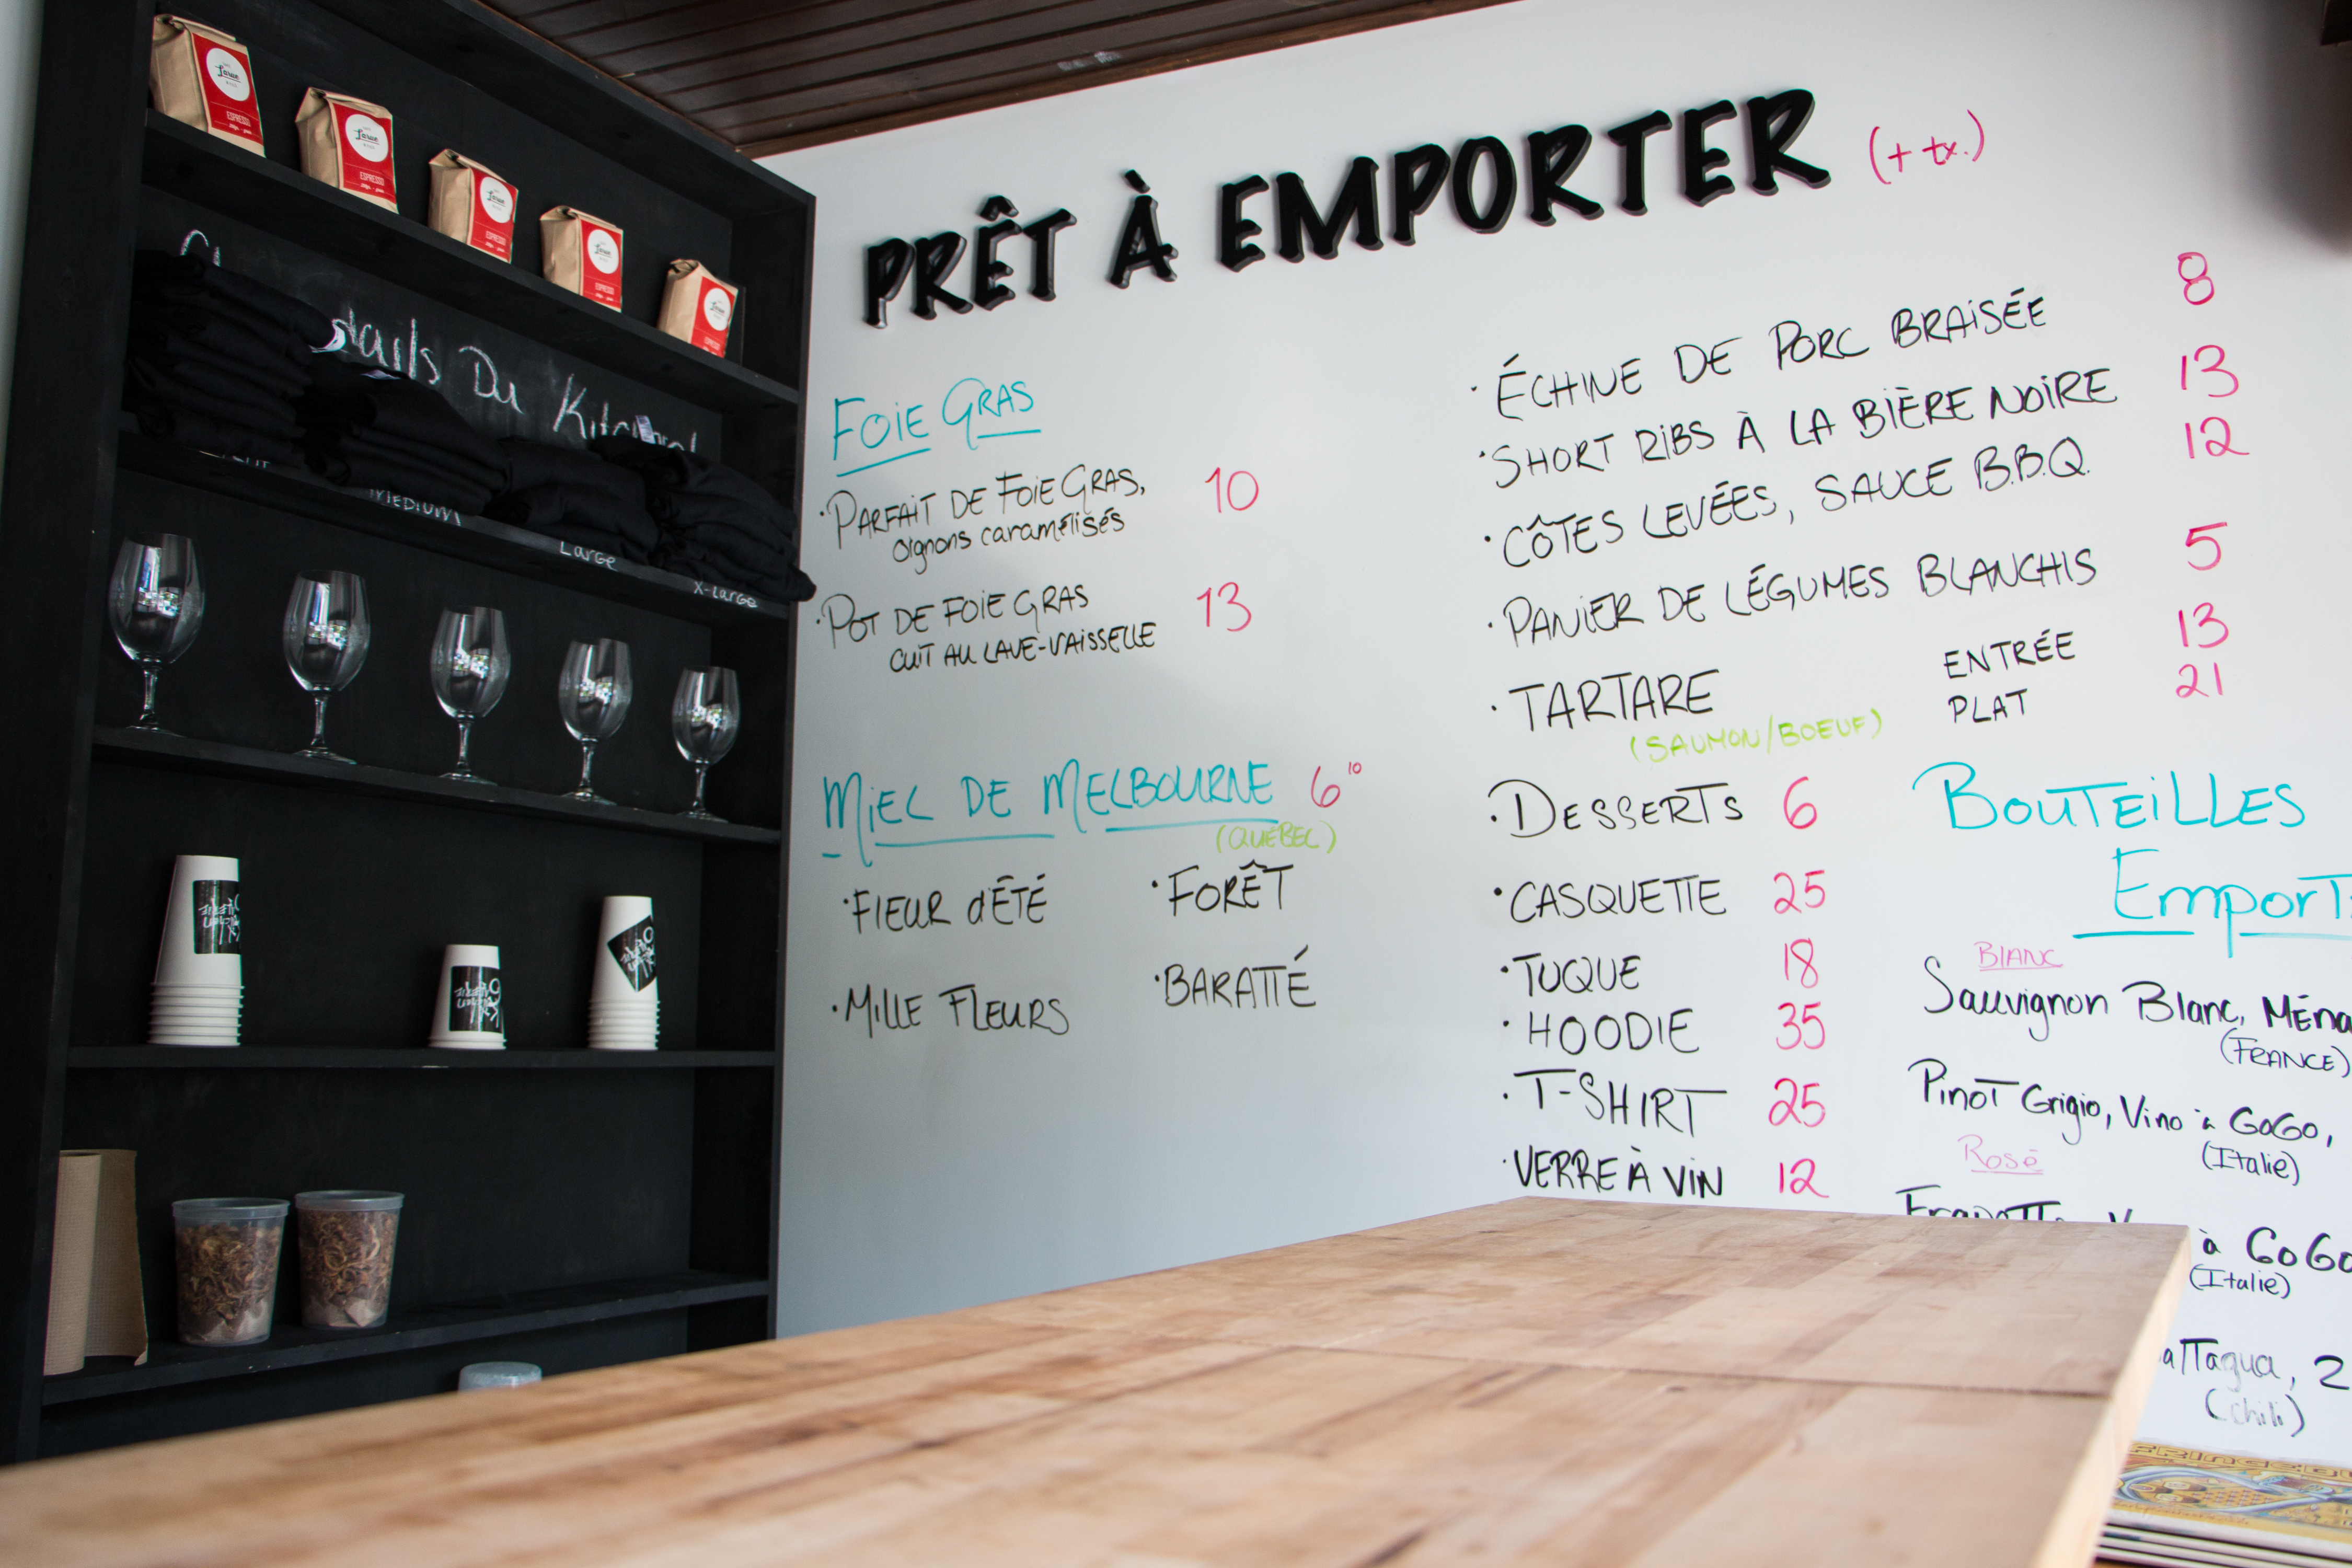 PRÊT À EMPORTER (+ tx.)
FOIE GRAS
· PARFAIT DE FOIE GRAS, 10
oignons caramélisés
· POT DE FOIE GRAS 13
CUIT AU LAVE-VAISSELLE
MIEL DE MELBOURNE 6 10
(QUÉBEC)
· FLEUR d'ÉTÉ
· FORÊT
· MILLE FLEURS
· BARATTÉ
· ÉCHINE DE PORC BRAISÉE 8
· SHORT RIBS À LA BIÈRE NOIRE 13
· CÔTES LEVÉES, SAUCE B.B.Q. 12
· PANIER DE LÉGUMES BLANCHIS 5
· TARTARE ENTRÉE 13
(SAUMON/BOEUF) PLAT 21
· DESSERTS 6
· CASQUETTE 25
· TUQUE 18
· HOODIE 35
· T-SHIRT 25
· VERRE À VIN 12
BOUTEILLES
BLANC
Sauvignon Blanc,
(FRANCE)
Pinot Grigio, Vino à GoGo,
(Italie)
Rosé
à GoGo
(Italie)
(Chili)
Du
MEDIUM
Large
X-Large
Larue
ESPRESSO
Larue
ESPRESSO
Larue
ESPRESSO
Larue
ESPRESSO
Larue
ESPRESSO